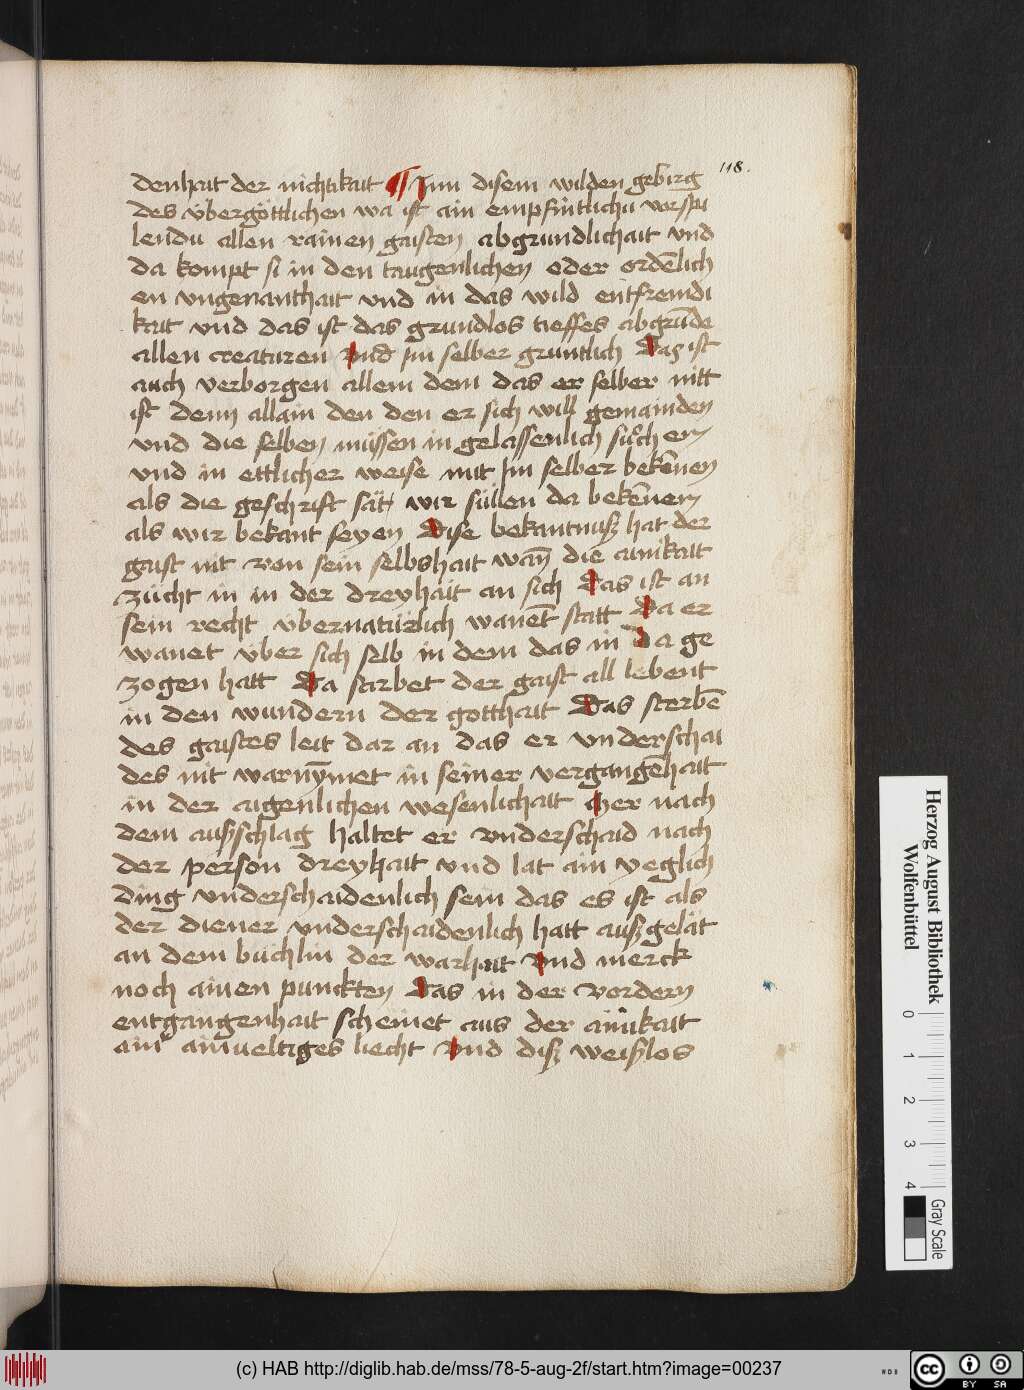 118.
denhait der nichtikait ¶ Inn disem wilden gebirg
des v̈bergöttlichen wa ist ain empfintlichu vorspi
lendu allen rainen gaisten abgrundlichait vnd
da kompt si in den taugenlichen oder ordēlich
en vngenanthait vnd in das wild entfremdi
kait vnd das ist das grundlos tieffes abgrūde
allen creaturen Vnd jm selber gruntlich Das ist
auch verborgen allem dem das er selber nitt
ist denn allain den den er sich will gemainden
vnd die selben müssen in gelassenlich sůchen
vnd in ettlicher weise mit Im selber bekēnen
als die geschrift sät wir süllen da bekēnen
als wir bekant seyen Dise bekantnuß hat der
gaist nit von sein selbshait wan̄ die ainikait
zücht in in der dreyhait an sich Das ist an
sein recht v̈bernatürlich wanēt statt Da er
wanet v̈ber sich selb in dem das in Da ge
zogen hatt Da starbet der gaist all lebent
in den wundern der gotthait Das sterbē
des gaistes leit dar an das er vnderschai
des nit warnȳmet in seiner vergangēhait
in der aigenlichen wesenlichait Her nach
dem außschlag haltet er vnderschaid nach
der person dreyhait vnd lat ain yeglich
ding vnderschaidenlich sein das es ist als
der diener vnderschaidenlich hatt außgelät
an dem büchlin der warhait Vnd merck
noch ainen punckten Das in der vordern
entgangenhait scheinet aus der ainikait
ain ainueltiges liecht Vnd diß weißlos
Herzog August Bibliothek
Wolfenbüttel
0 1 2 3 4
Gray Scale
(c) HAB http://diglib.hab.de/mss/78-5-aug-2f/start.htm?image=00237
WDB
cc BY SA